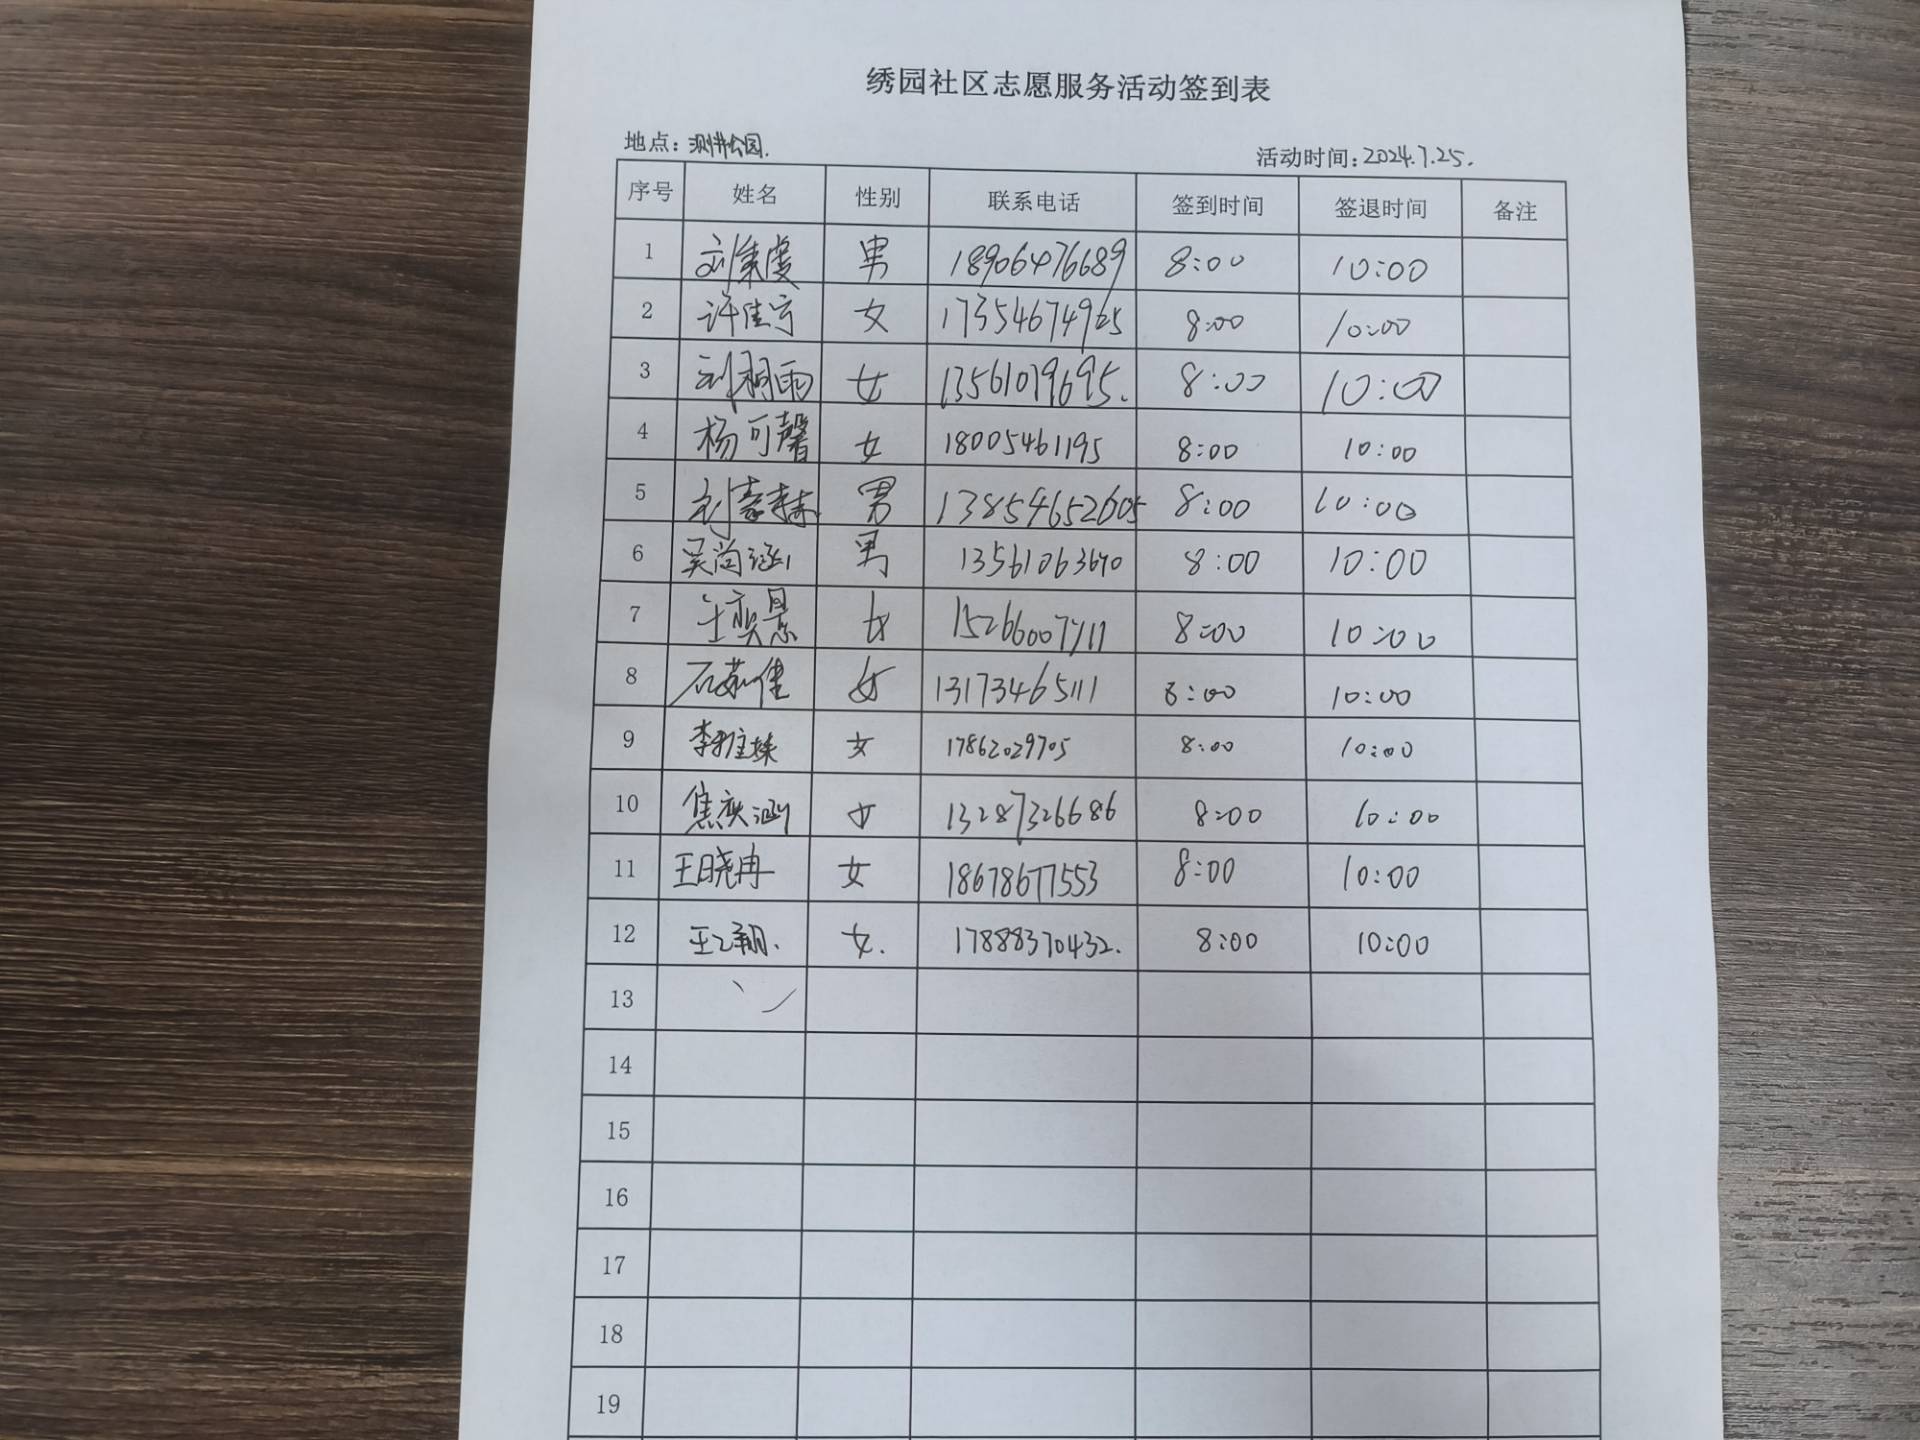 绣园社区志愿服务活动签到表
地点: 公园. 活动时间:2024.7.25.
序号 姓名 性别 联系电话 签到时间 签退时间 备注
1 男 18906476689 8:00 10:00
2 许佳宁 女 17354674965 8:00 10:00
3 女 13561079695. 8:00 10:00
4 杨可馨 女 18005461195 8:00 10:00
5 男 13854652605 8:00 10:00
6 吴尚涵 男 13561063670 8:00 10:00
7 王奕景 女 8:00 10:00
8 石茹佳 女 13173465111 8:00 10:00
9 女 17862029705 8:00 10:00
10 焦奕涵 女 13287326686 8:00 10:00
11 王晓冉 女 18678677553 8:00 10:00
12 女. 17888370432. 8:00 10:00
13
14
15
16
17
18
19